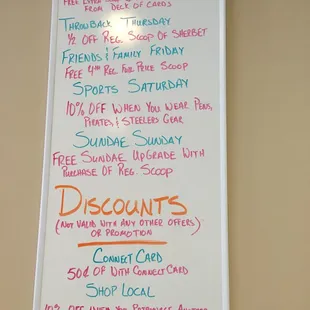 FREE EXTRA
FROM DECK OF CARDS
THROWBACK THURSDAY
½ OFF REG. SCOOP OF SHERBET
FRIENDS & FAMILY FRIDAY
FREE 4TH REG. FULL PRICE SCOOP
SPORTS SATURDAY
10% OFF WHEN YOU WEAR PENS,
PIRATES, & STEELERS GEAR
SUNDAE SUNDAY
FREE SUNDAE UPGRADE WITH
PURCHASE OF REG. SCOOP
DISCOUNTS
(NOT VALID WITH ANY OTHER OFFERS)
OR PROMOTION
CONNECT CARD
50¢ OF WITH CONNECT CARD
SHOP LOCAL
10% OFF WHEN YOU PATRONAGE